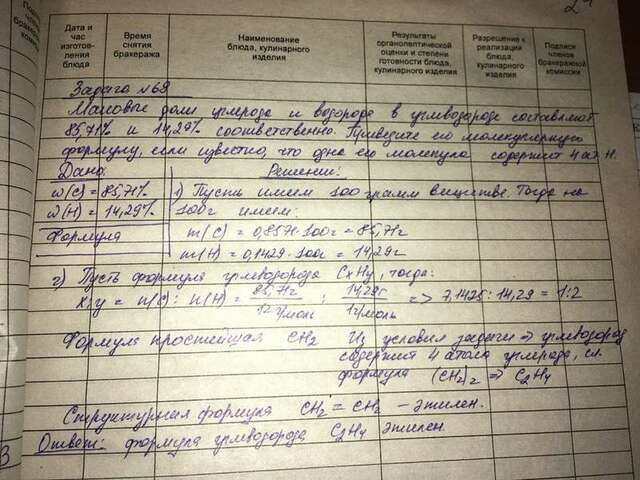 24
Дата и час изготов- ления блюда
Время снятия бракеража
Наименование блюда, кулинарного изделия
Результаты органолептической оценки и степени готовности блюда, кулинарного изделия
Разрешение к реализации блюда, кулинарного изделия
Подписи членов бракеражной комиссии
Задача №69
Массовые доли углерода и водорода в углеводороде составляют
85,71% и 14,29% соответственно. Приведите его молекулярную
формулу, если известно, что одна его молекула содержит 4 ат H.
Дано: Решение:
ω(C) = 85,71% 1) Пусть имеем 100 грамм вещества. Тогда на
ω(H) = 14,29% 100г имеем:
Формула m(C) = 0,8571·100г = 85,71г
m(H) = 0,1429·100г = 14,29г
2) Пусть формула углеводорода CxHy, тогда:
x:y = n(C) : n(H) = 85,71г / 12г/моль : 14,29г / 1г/моль => 7,1425 : 14,29 = 1:2
Формула простейшая CH2 Из условия задачи => углеводород
содержит 4 атома углерода, сл.
формула (CH2)2 => C2H4
Структурная формула CH2 = CH2 – этилен.
Ответ: формула углеводорода C2H4 этилен.